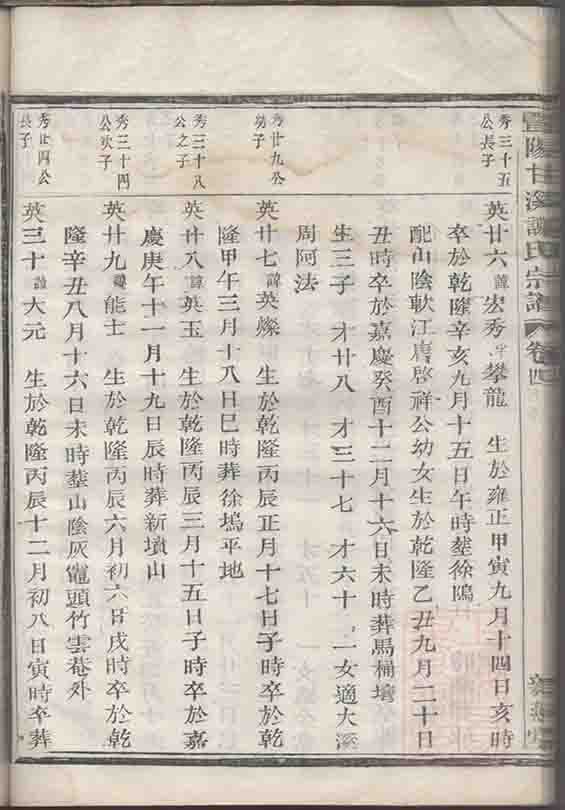 陽甘溪譚氏宗譜 卷四
秀三十五
公長子
英廿六 諱 宏秀 字 攀龍 生於雍正甲寅九月十四日亥時
卒於乾隆辛亥九月十五日午時塟徐隖
配山陰軟江唐啓祥公幼女生於乾隆乙丑九月二十日
丑時卒於嘉慶癸酉十二月十六日未時葬馬桶壇
生三子 才廿八 才三十七 才六十 一女適大溪
周阿法
秀廿九公
幼子
英廿七 諱 英燦 生於乾隆丙辰正月十七日子時卒於乾
隆甲午三月十八日巳時葬徐塢平地
秀三十八
公之子
英廿八 諱 英玉 生於乾隆丙辰三月十五日子時卒於嘉
慶庚午十一月十九日辰時葬新墳山
秀三十四
公次子
英廿九 諱 能士 生於乾隆丙辰六月初六日戌時卒於乾
隆辛丑八月十六日未時塟山陰灰竈頭竹雲菴外
秀廿四公
長子
英三十 諱 大元 生於乾隆丙辰十二月初八日寅時卒葬